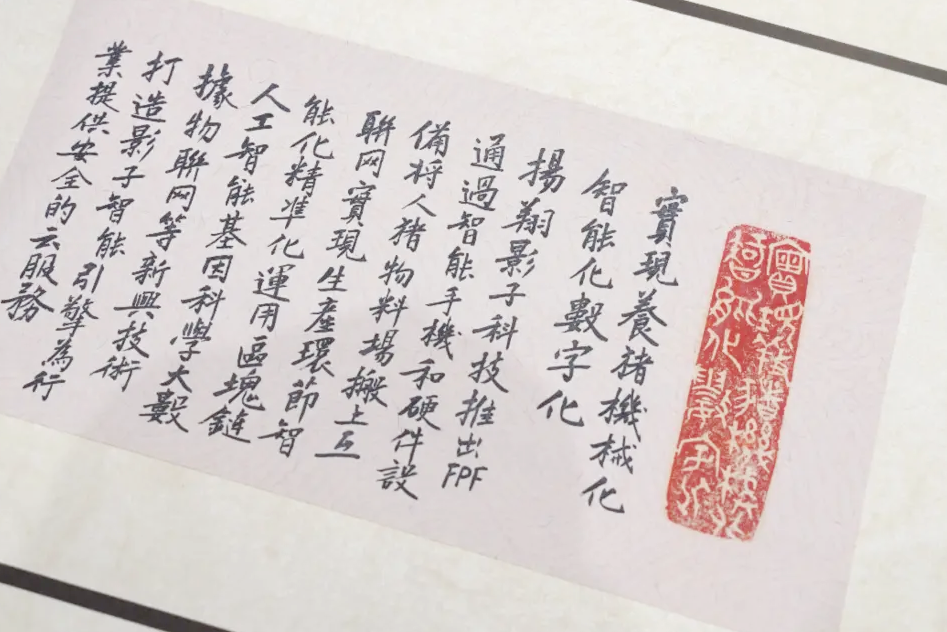 智能化數字化
實現養猪機械化
智能化數字化
揚翔影子科技推出FPF
通過智能手機和硬件設
備將人猪物料場搬上互
聯网實現生產環節智
能化精準化運用區塊鏈
人工智能基因科學大數
據物聯网等新興技術
打造影子智能引擎為行
業提供安全的云服務